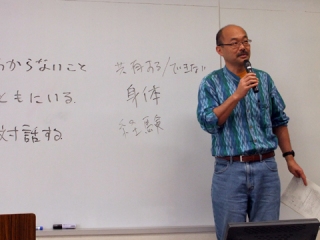 からないこと 共有する/できない
ともにいる 身体
対話する 経験